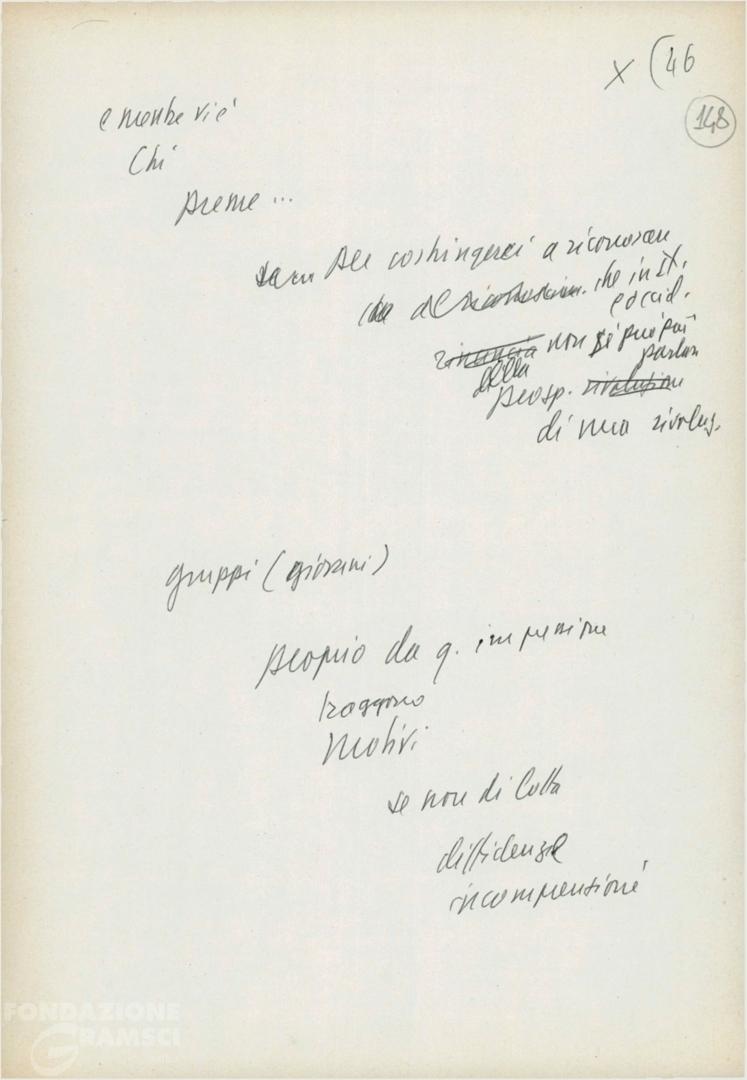 x (46
148
e mentre vi è
Chi
preme...
per costringerci a riconoscere
che in It.
e occid.
rinuncia non si può più
della parlare
prosp. rivoluzione
di una rivoluz.
gruppi (giovani)
proprio da q. impressione
traggono
motivi
se non di lotta
diffidenza
incomprensione
FONDAZIONE
GRAMSCI